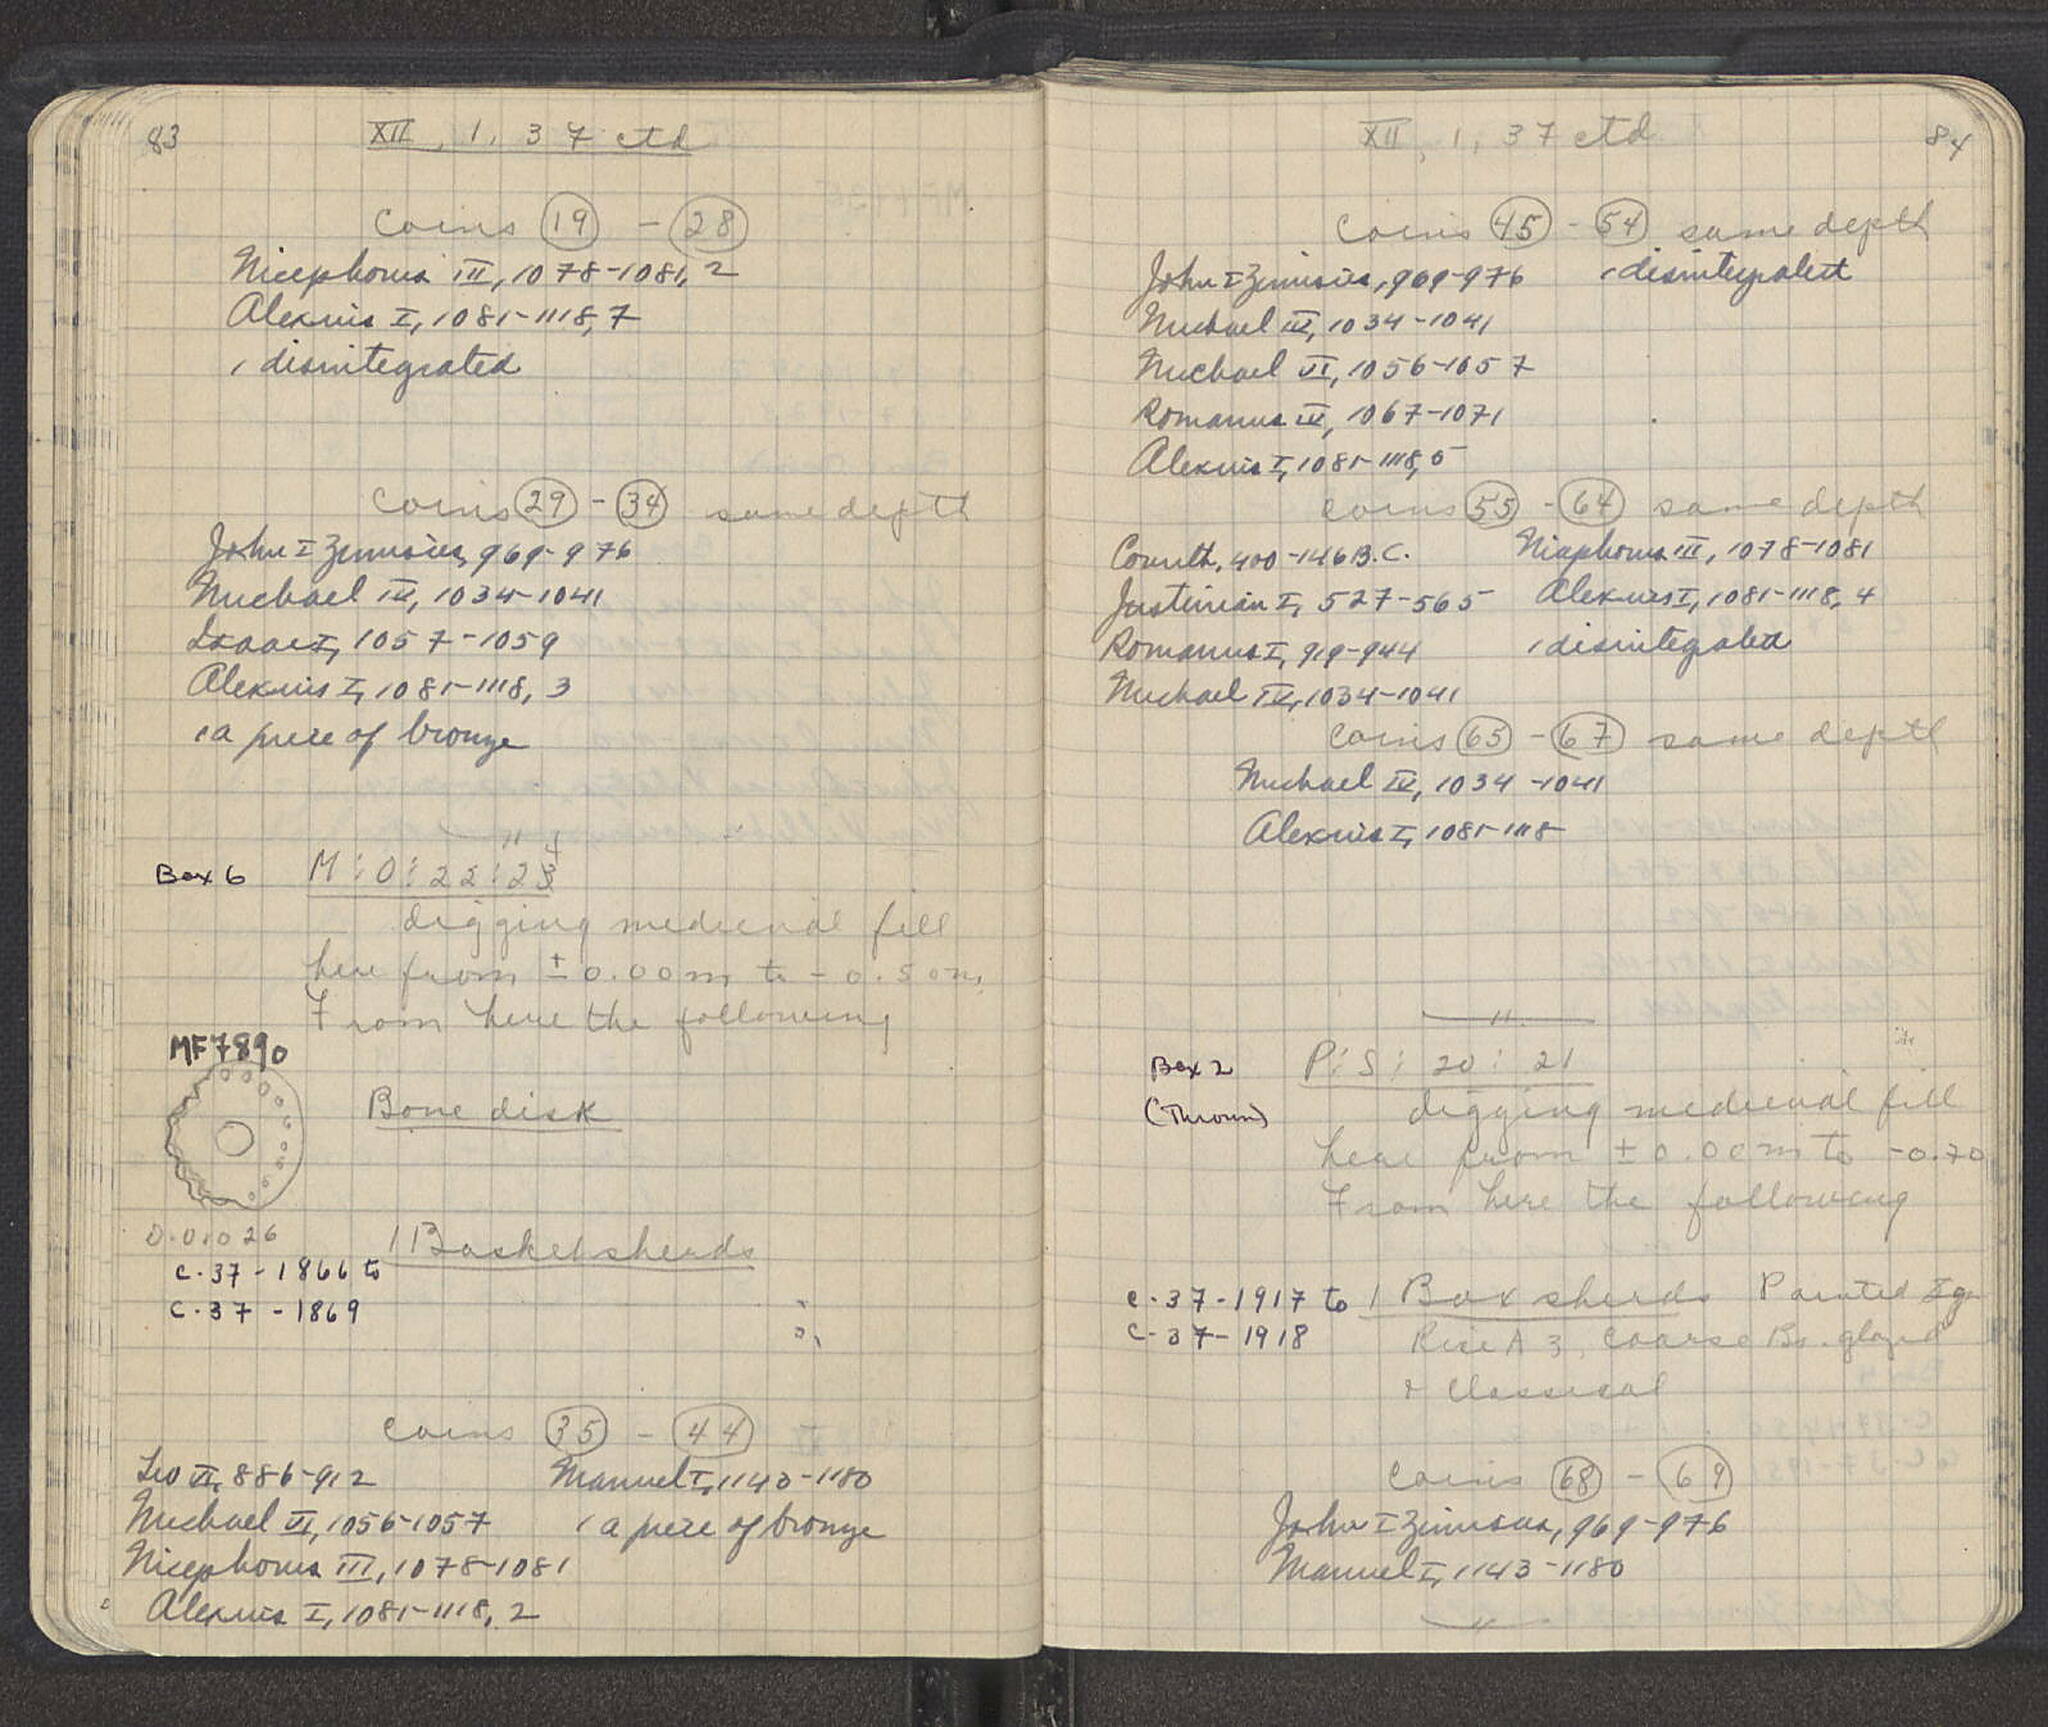 83
XII, 1, 37 ctd
coins 19 - 28
Nicephorus III, 1078-1081, 2
Alexius I, 1081-1118, 7
1 disintegrated
coins 29 - 34 same depth
John I Zimisces, 969-976
Michael IV, 1034-1041
Isaac I, 1057-1059
Alexius I, 1081-1118, 3
1 a piece of bronze
Box 6
M:O:22:24
digging medieval fill
here from ±0.00m to -0.50m.
From here the following
MF7890
Bone disk
D. 0.026
1 Basket sherds
C-37-1866 to
C-37-1869
coins 35 - 44
Leo VI, 886-912
Michael VI, 1056-1057
Nicephorus III, 1078-1081
Alexius I, 1081-1118, 2
Manuel I, 1143-1180
1 a piece of bronze
XII, 1, 37 ctd
84
coins 45 - 54 same depth
John I Zimisces, 969-976
1 disintegrated
Michael IV, 1034-1041
Michael VI, 1056-1057
Romanus IV, 1067-1071
Alexius I, 1081-1118, 5
coins 55 - 64 same depth
Corinth, 400-146 B.C.
Justinian I, 527-565
Romanus I, 919-944
Michael IV, 1034-1041
Nicephorus III, 1078-1081
Alexius I, 1081-1118, 4
1 disintegrated
coins 65 - 67 same depth
Michael IV, 1034-1041
Alexius I, 1081-1118
Box 2
(Thrown)
P:S:20:21
digging medieval fill
here from ±0.00m to -0.70
From here the following
C-37-1917 to
C-37-1918
1 Box sherds Painted Sg
Rice A 3, Coarse Br. glazed
& Classical
coins 68 - 69
John I Zimisces, 969-976
Manuel I, 1143-1180